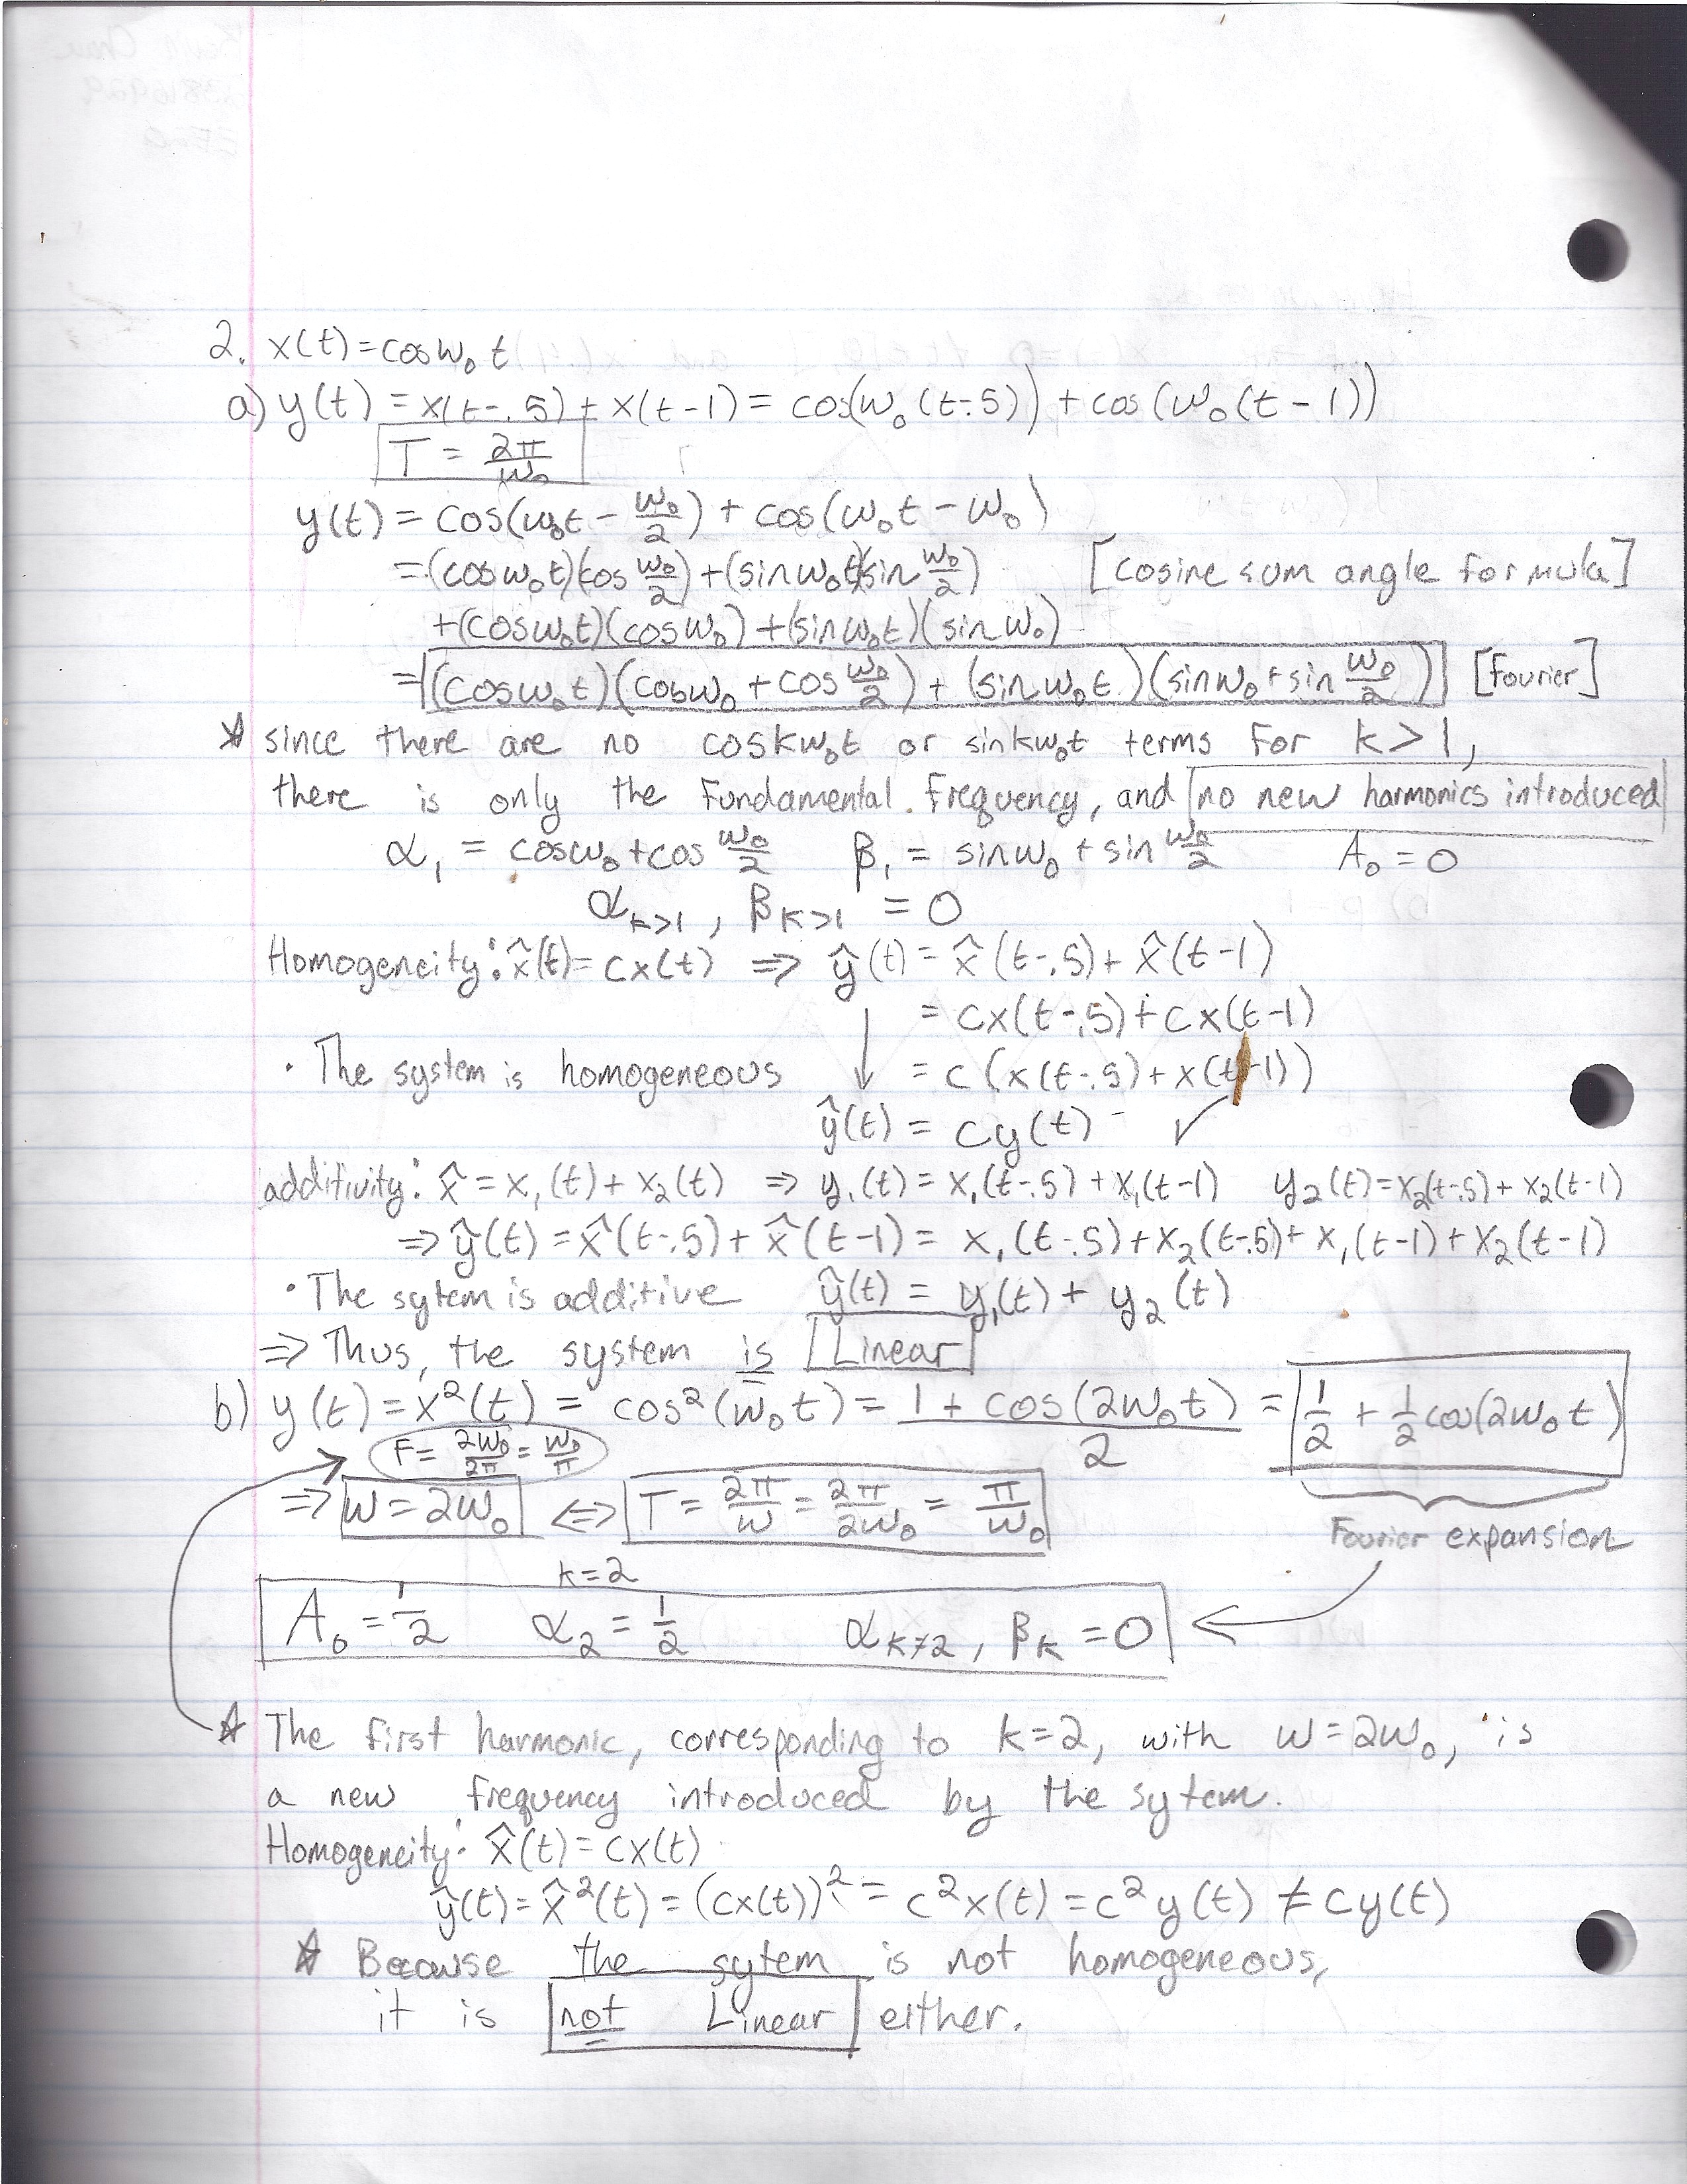 2. x(t) = cos ω₀ t
a) y(t) = x(t-.5) + x(t-1) = cos(ω₀(t-.5)) + cos(ω₀(t-1))
T = 2π/ω₀
y(t) = cos(ω₀t - ω₀/2) + cos(ω₀t - ω₀)
= (cos ω₀t)(cos ω₀/2) + (sin ω₀t)(sin ω₀/2) [cosine sum angle formula]
+ (cos ω₀t)(cos ω₀) + (sin ω₀t)(sin ω₀)
= (cos ω₀t)(cos ω₀ + cos ω₀/2) + (sin ω₀t)(sin ω₀ + sin ω₀/2) [Fourier]
☆ since there are no cos kω₀t or sin kω₀t terms for k>1,
there is only the fundamental frequency, and no new harmonics introduced
α₁ = cos ω₀ + cos ω₀/2 β₁ = sin ω₀ + sin ω₀/2 A₀ = 0
α_k>1, β_k>1 = 0
Homogeneity: x̂(t) = cx(t) ⇒ ŷ(t) = x̂(t-.5) + x̂(t-1)
= cx(t-.5) + cx(t-1)
· The system is homogeneous ↓ = c(x(t-.5) + x(t-1))
ŷ(t) = cy(t) ✓
additivity: x̂ = x₁(t) + x₂(t) ⇒ y₁(t) = x₁(t-.5) + x₁(t-1) y₂(t) = x₂(t-.5) + x₂(t-1)
⇒ ŷ(t) = x̂(t-.5) + x̂(t-1) = x₁(t-.5) + x₂(t-.5) + x₁(t-1) + x₂(t-1)
· The sytem is additive ŷ(t) = y₁(t) + y₂(t)
⇒ Thus, the system is Linear
b) y(t) = x²(t) = cos²(ω₀t) = 1 + cos(2ω₀t)/2 = 1/2 + 1/2 cos(2ω₀t)
F = 2ω₀/2π = ω₀/π
⇒ ω = 2ω₀ ⇔ T = 2π/ω = 2π/2ω₀ = π/ω₀ Fourier expansion
k=2
A₀ = 1/2 α₂ = 1/2 α_k≠2, β_k = 0
☆ The first harmonic, corresponding to k=2, with ω=2ω₀, is
a new frequency introduced by the sytem.
Homogeneity: x̂(t) = cx(t)
ŷ(t) = x̂²(t) = (cx(t))² = c²x(t) = c²y(t) ≠ cy(t)
☆ Because the sytem is not homogeneous,
it is not Linear either.